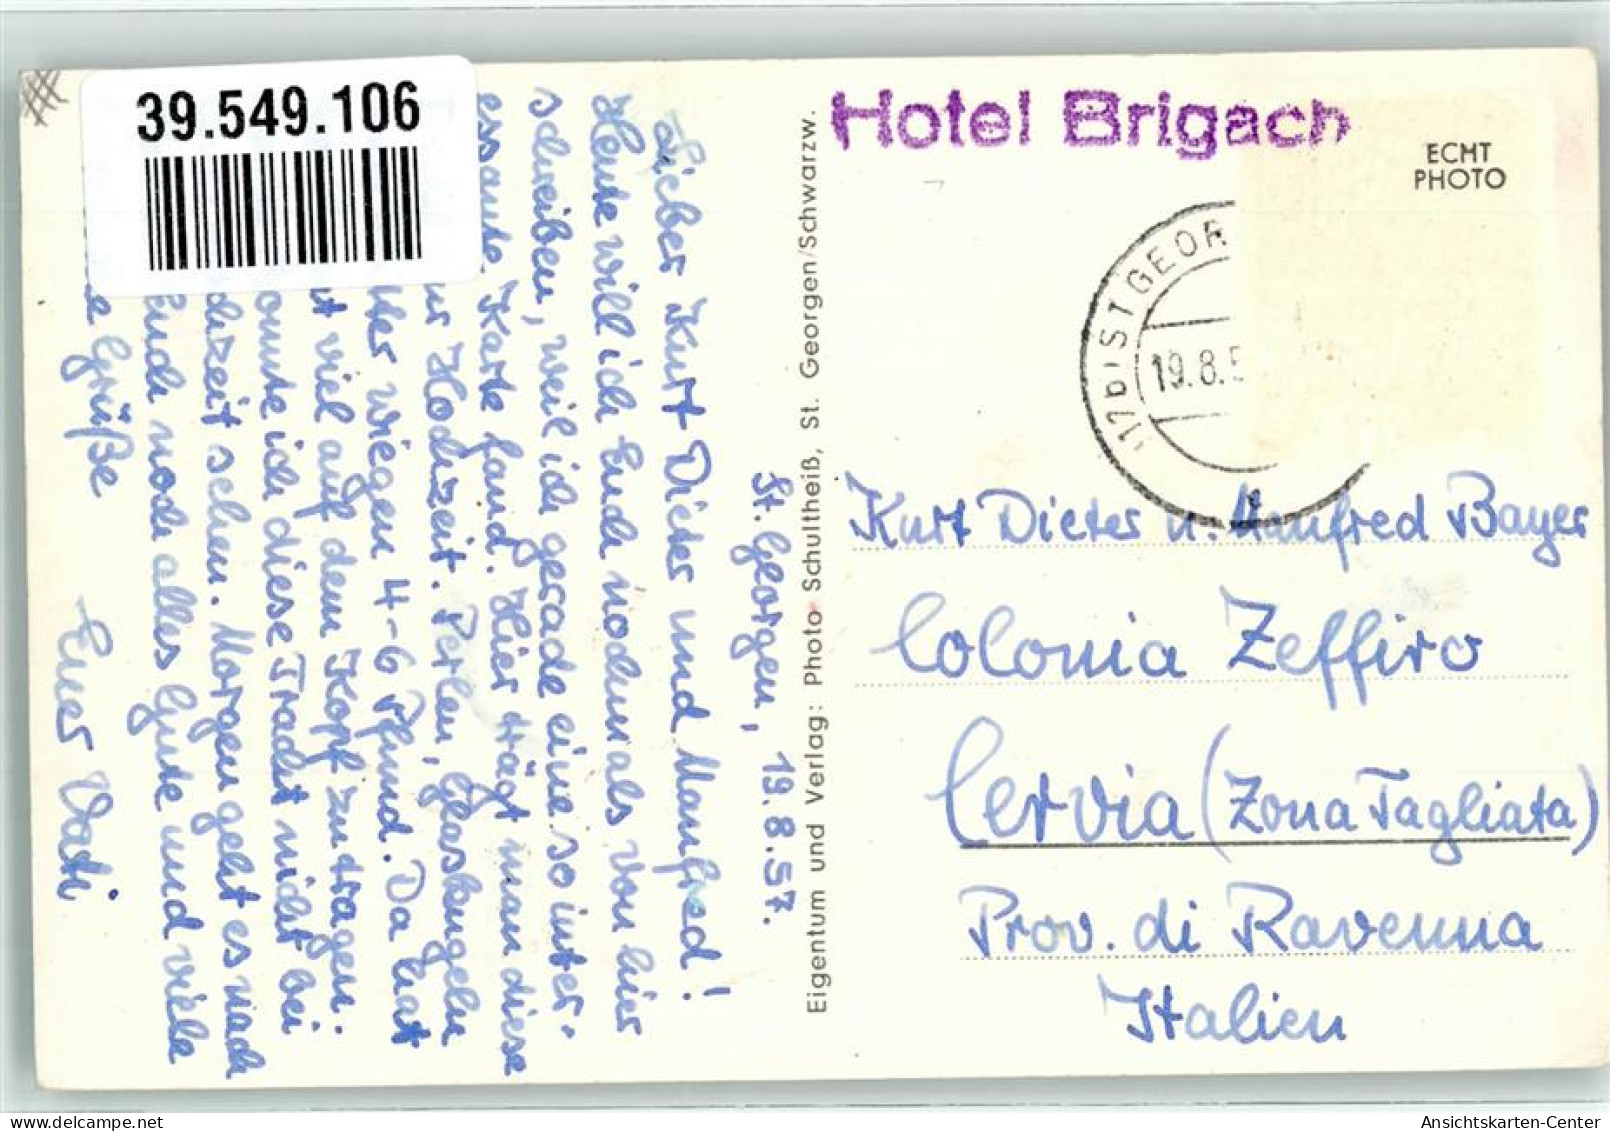 39.549.106
St. Georgen, 19.8.57.
Lieber Kurt Dieter und Manfred!
Heute will ich Euch nochmals von hier
schreiben, weil ich gerade eine so inter-
essante Karte fand. Hier trägt man diese
Hochzeit. Perlen, Glaskugeln
wiegen 4-6 Pfund. Da hat
viel auf dem Kopf zu tragen.
konnte ich diese Tracht nicht bei
Hochzeit sehen. Morgen geht es nach
Euch noch alles Gute und viele
Grüße
Euer Vati
Eigentum und Verlag: Photo Schultheiß, St. Georgen/Schwarzw.
Hotel Brigach
ECHT
PHOTO
(17b) ST GEOR
19.8.5
Kurt Dieter u. Manfred Bayer
Colonia Zeffiro
Cervia (Zona Tagliata)
Prov. di Ravenna
Italien
Ansichtskarten-Center